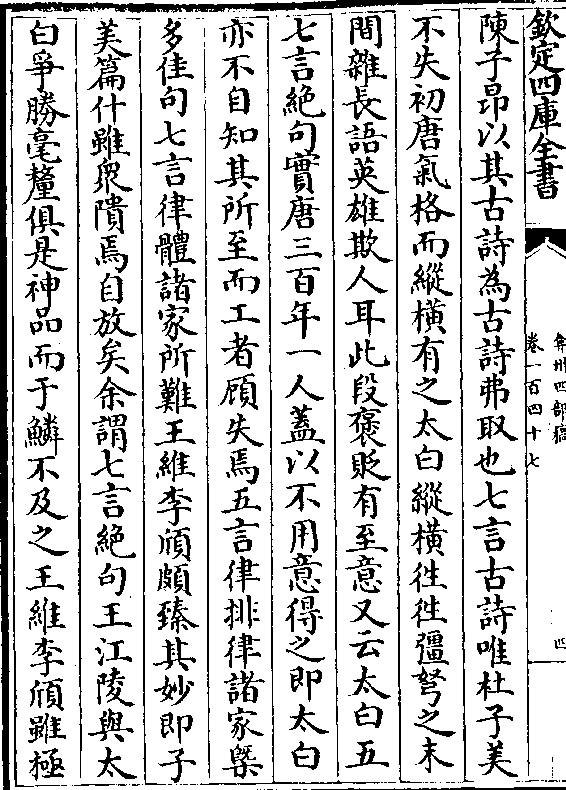 欽定四庫全書
弇州四部稿
卷一百四十七
四
陳子昂以其古詩為古詩弗取也七言古詩唯杜子美
不失初唐氣格而縱橫有之太白縱橫徃徃彊弩之末
間雜長語英雄欺人耳此段褒貶有至意又云太白五
七言絶句實唐三百年一人蓋以不用意得之即太白
亦不自知其所至而工者顧失焉五言律排律諸家槩
多佳句七言律體諸家所難王維李頎頗臻其妙即子
美篇什雖衆隤焉自放矣余謂七言絶句王江陵與太
白爭勝毫釐俱是神品而于鱗不及之王維李頎雖極